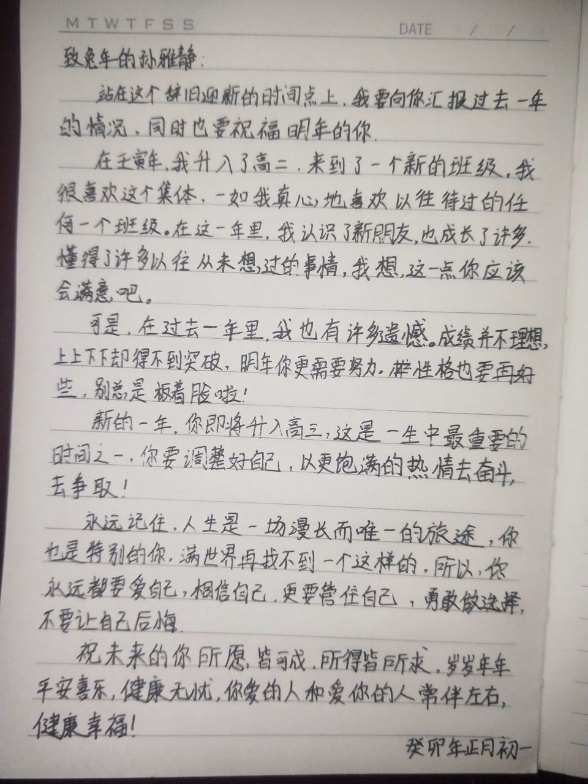 M T W T F S S DATE / /
致兔年的孙雅静:
站在这个辞旧迎新的时间点上,我要向你汇报过去一年
的情况,同时也要祝福明年的你.
在壬寅年,我升入了高二,来到了一个新的班级。我
很喜欢这个集体,一如我真心地喜欢以往待过的任
何一个班级。在这一年里,我认识了新朋友,也成长了许多.
懂得了许多以往从未想过的事情,我想,这一点你应该
会满意吧。
可是,在过去一年里,我也有许多遗憾。成绩并不理想,
上上下下却得不到突破,明年你更需要努力。性格也要再好
些,别总是板着脸啦!
新的一年,你即将升入高三,这是一生中最重要的
时间之一,你要调整好自己,以更饱满的热情去奋斗,
去争取!
永远记住,人生是一场漫长而唯一的旅途,你
也是特别的你,满世界再找不到一个这样的.所以,你
永远都要爱自己,相信自己.更要管住自己,勇敢做选择,
不要让自己后悔.
祝未来的你所愿,皆可成,所得皆所求,岁岁年年
平安喜乐,健康无忧,你爱的人和爱你的人常伴左右,
健康幸福!
癸卯年正月初一